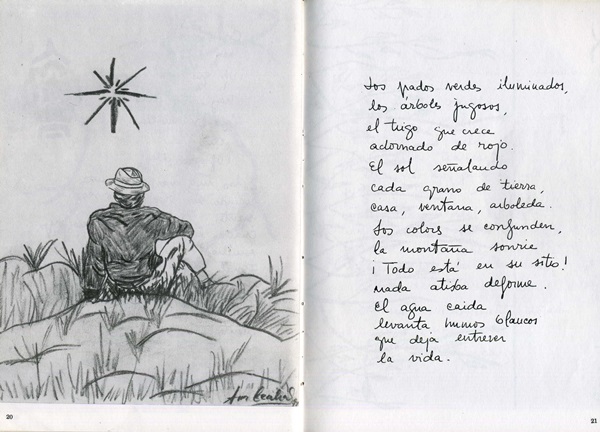 20
Los prados verdes iluminados,
los árboles jugosos,
el trigo que crece
adornado de rojo.
El sol señalando
cada grano de tierra,
casa, ventana, arboleda.
Los colores se confunden,
la montaña sonríe
¡Todo está en su sitio!
nada atisba deforme.
El agua caida
levanta humos blancos
que deja entrever
la vida.
21